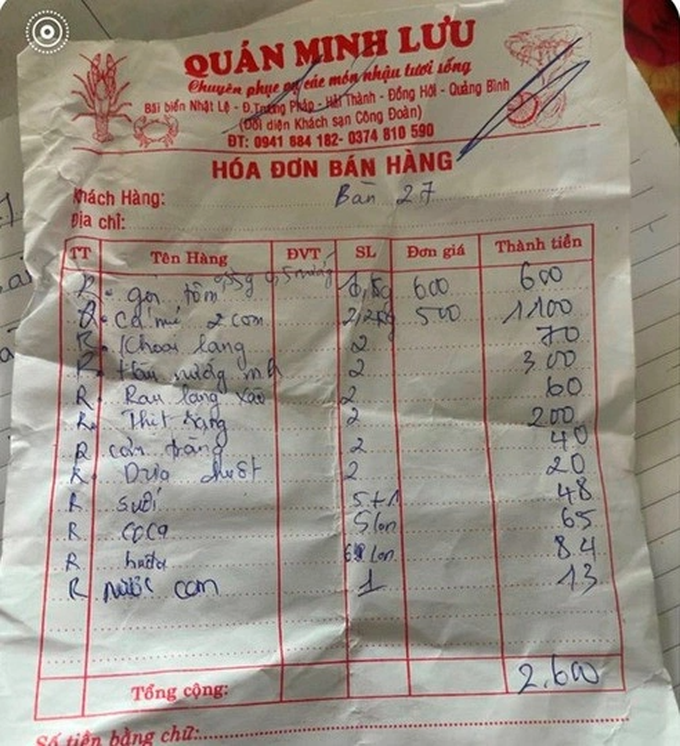 QUÁN MINH LƯU
Chuyên phục vụ các món nhậu tươi sống
Bãi biển Nhật Lệ - Đ.Trương Pháp - Hải Thành - Đồng Hới - Quảng Bình
(Đối diện Khách sạn Công Đoàn)
ĐT: 0941 884 182- 0374 810 590
HÓA ĐƠN BÁN HÀNG
Khách Hàng: Bàn 27
Địa chỉ:
TT Tên Hàng ĐVT SL Đơn giá Thành tiền
R gỏi tôm 600 600
R cá mú 2 con 2,2kg 500 1100
R Khoai lang 2 70
R Hàu nướng mh 2 300
R Rau lang xào 2 60
R Thịt 2 200
R cơm trắng 2 40
R Dưa chuột 2 20
R suối 5+1 48
R coca 5 lon 65
R huda lon 84
R nước cam 1 13
Tổng cộng: 2.600
Số tiền bằng chữ: